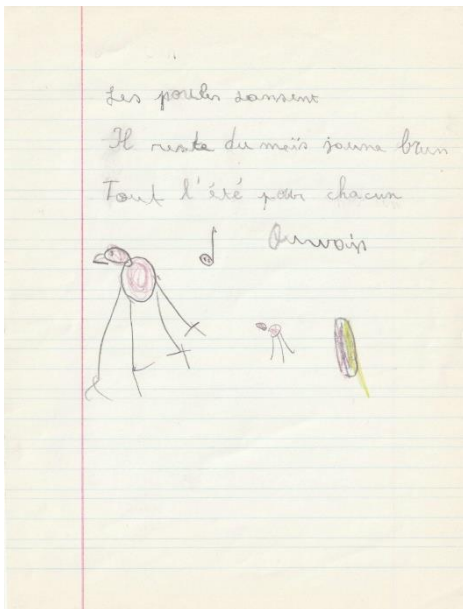 Les poules dansent
Il reste du maïs jaune brun
Tout l'été pour chacun